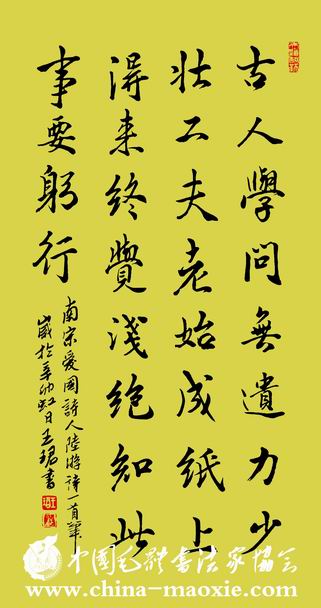 古人學問無遺力少
壮工夫老始成紙上
淂来終覺淺絕知此
事要躬行
南宋愛國詩人陸游詩一首
歲於辛卯 日王珺書
中国毛体书法家协会
www.china-maoxie.com